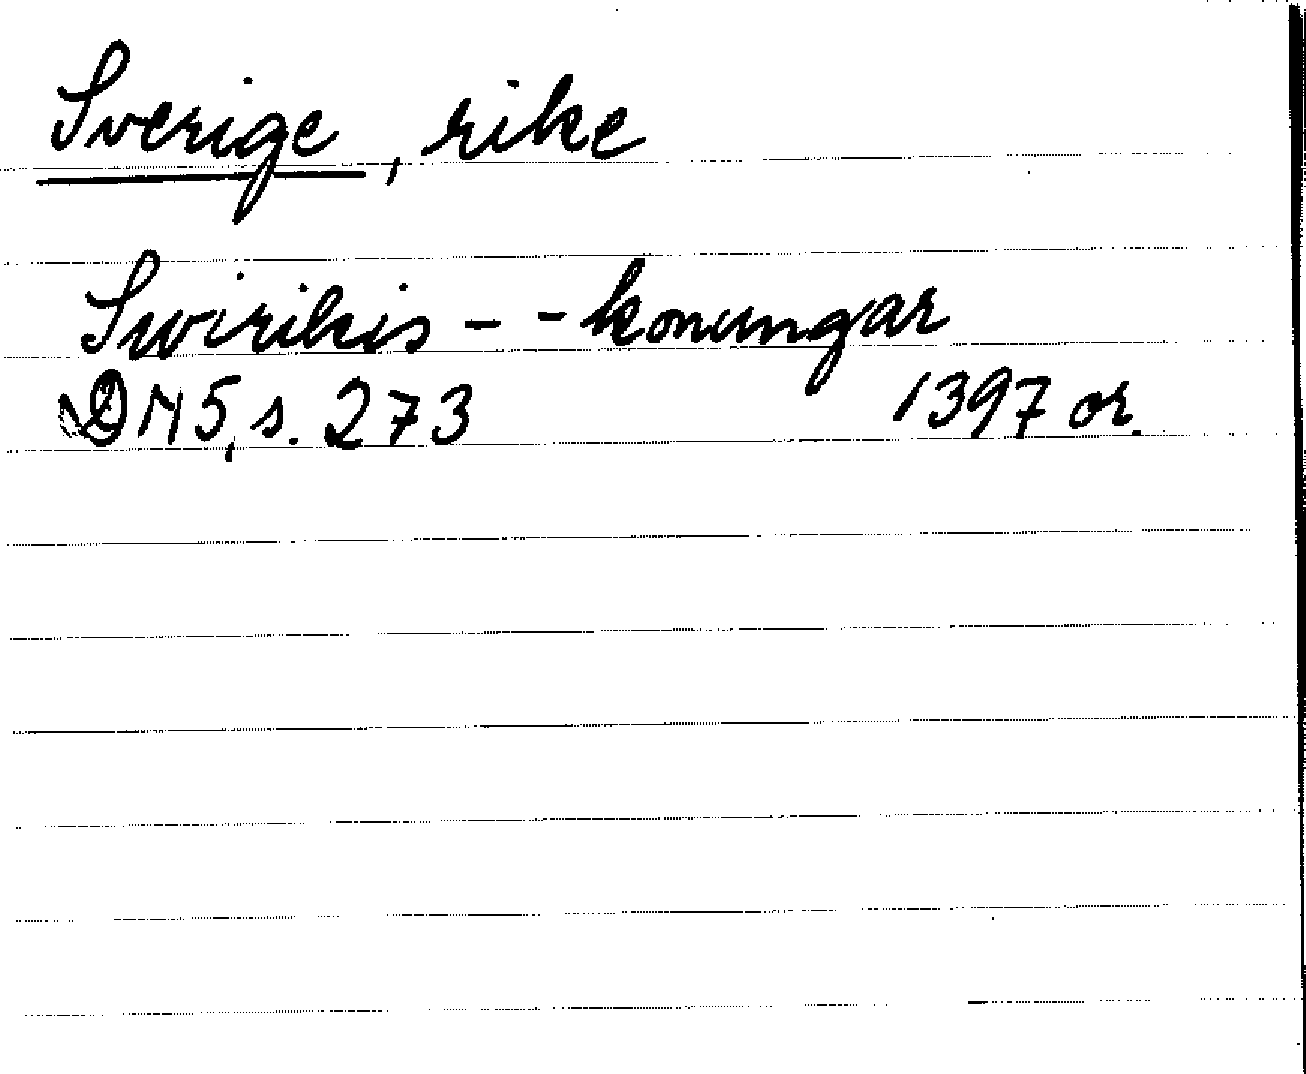 Sverige, rike
Swirikis - - konungar
DN5, s. 273 1397 or.